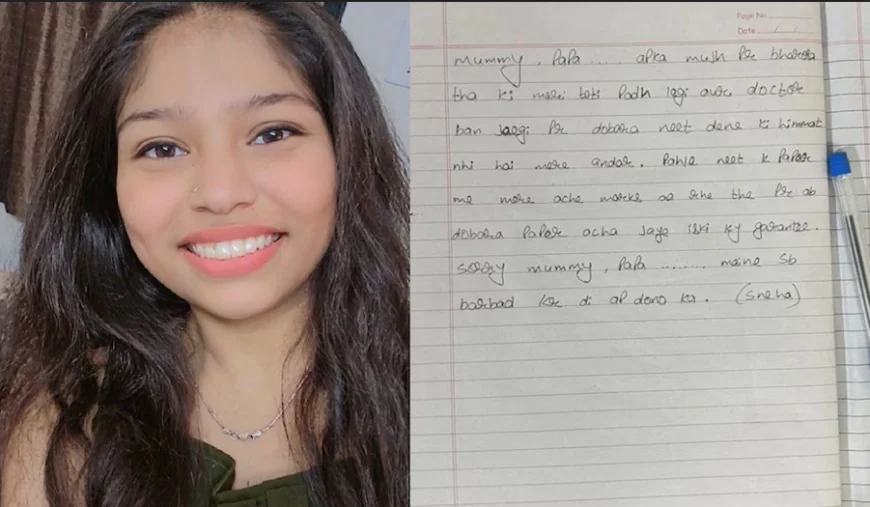 Page No.
Date / /
Mummy, Papa .... apka mujh Pr bharosa
tha ki meri beti Padh legi aur doctor
ban jaegi Pr dobara neet dene ki himmat
nhi hai mere andar. Pahle neet k PaPer
me mere ache marks aa rhe the Pr ab
dobara PaPer acha jaye iski ky garantee.
sorry mummy, PaPa ........ maine sb
barbad kr di aP dono ka. (sneha)